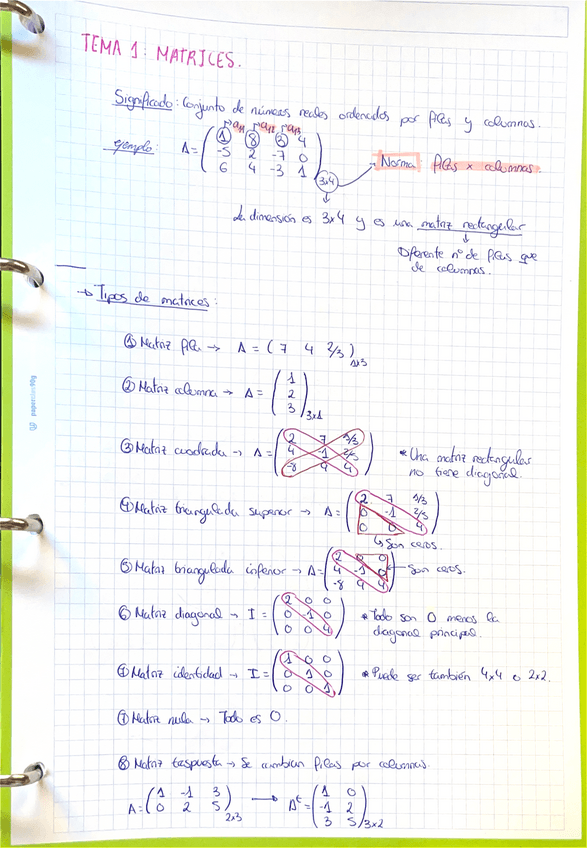 TEMA 1: MATRICES.
Significado: Conjunto de números reales ordenados por filas y columnas.
a11 a12 a13
ejemplo: A = ( 1 8 3 4
-5 2 -7 0
6 4 -3 1 ) 3x4
→ Norma filas x columnas.
La dimensión es 3x4 y es una matriz rectangular
↓
Diferente nº de filas que
de columnas.
→ Tipos de matrices:
① Matriz fila → A = ( 7 4 2/3 ) 1x3
② Matriz columna → A = ( 1
2
3 ) 3x1
③ Matriz cuadrada → A = ( 2 7 1/3
4 -1 2/3
-8 4 4 )
* Una matriz rectangular
no tiene diagonal.
④ Matriz triangulada superior → A = ( 2 7 1/3
0 -1 2/3
0 0 4 )
↳ Son ceros.
⑤ Matriz triangulada inferior → A = ( 2 0 0
4 -1 0
-8 9 4 ) ← Son ceros.
⑥ Matriz diagonal → I = ( 2 0 0
0 -1 0
0 0 4 )
* Todo son 0 menos la
diagonal principal.
⑦ Matriz identidad → I = ( 1 0 0
0 1 0
0 0 1 )
* Puede ser también 4x4 o 2x2.
⑦ Matriz nula → Todo es 0.
⑧ Matriz traspuesta → Se cambian filas por columnas.
A = ( 1 -1 3
0 2 5 ) 2x3
→ Aᵗ = ( 1 0
-1 2
3 5 ) 3x2